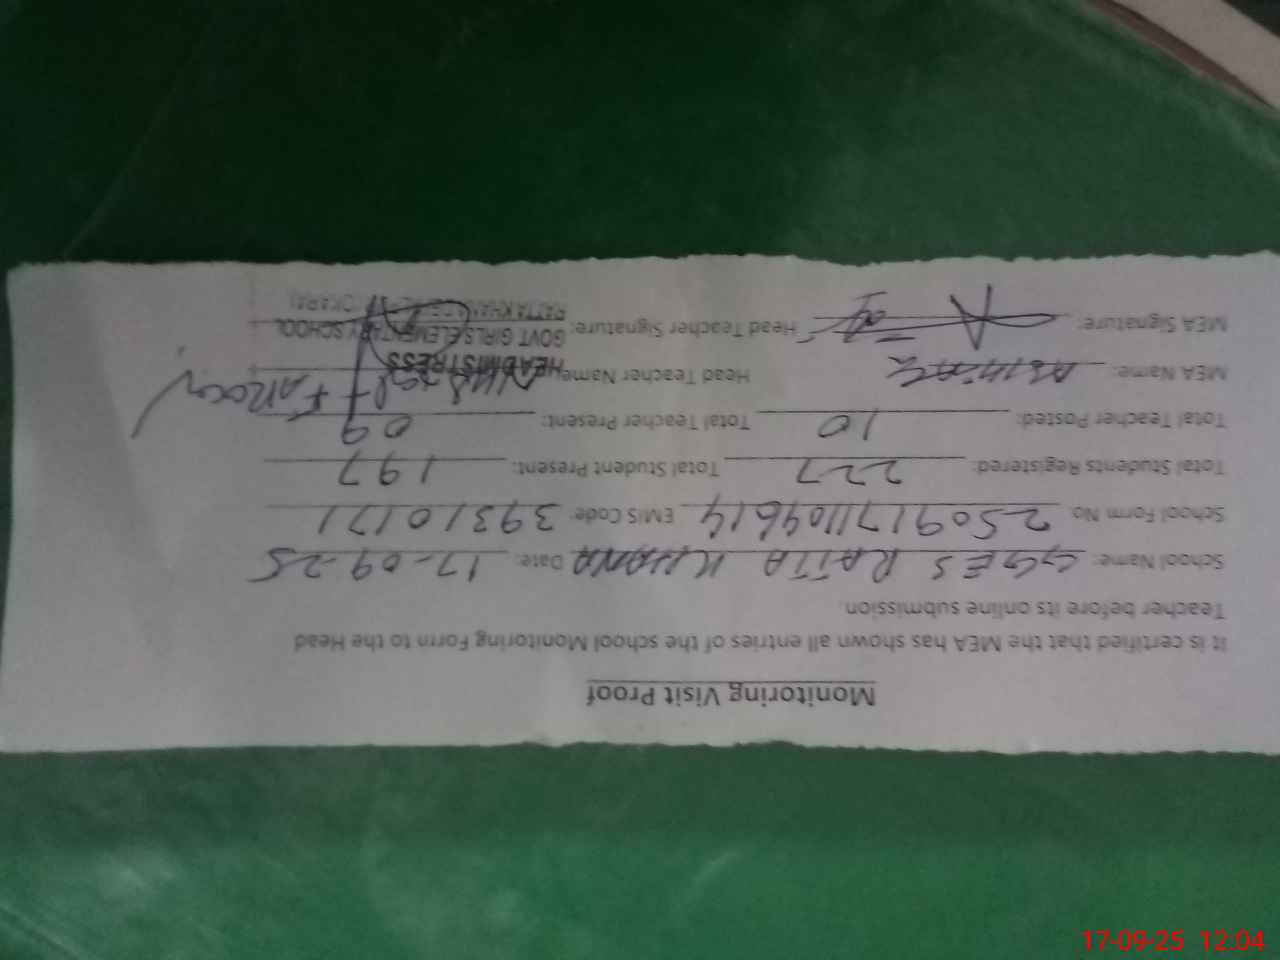 Monitoring Visit Proof
It is certified that the MEA has shown all entries of the school Monitoring Form to the Head
Teacher before its online submission.
School Name: GGES RATTA KHANA Date: 17-09-25
School Form No: 2509171104614 EMIS Code: 39310171
Total Students Registered: 227 Total Student Present: 197
Total Teacher Posted: 10 Total Teacher Present: 09
MEA Name: Head Teacher Name:
HEADMISTRESS
MEA Signature: Head Teacher Signature:
GOVT GIRLS ELEMENTARY SCHOOL
RATTA KHANA
17-09-25 12:04